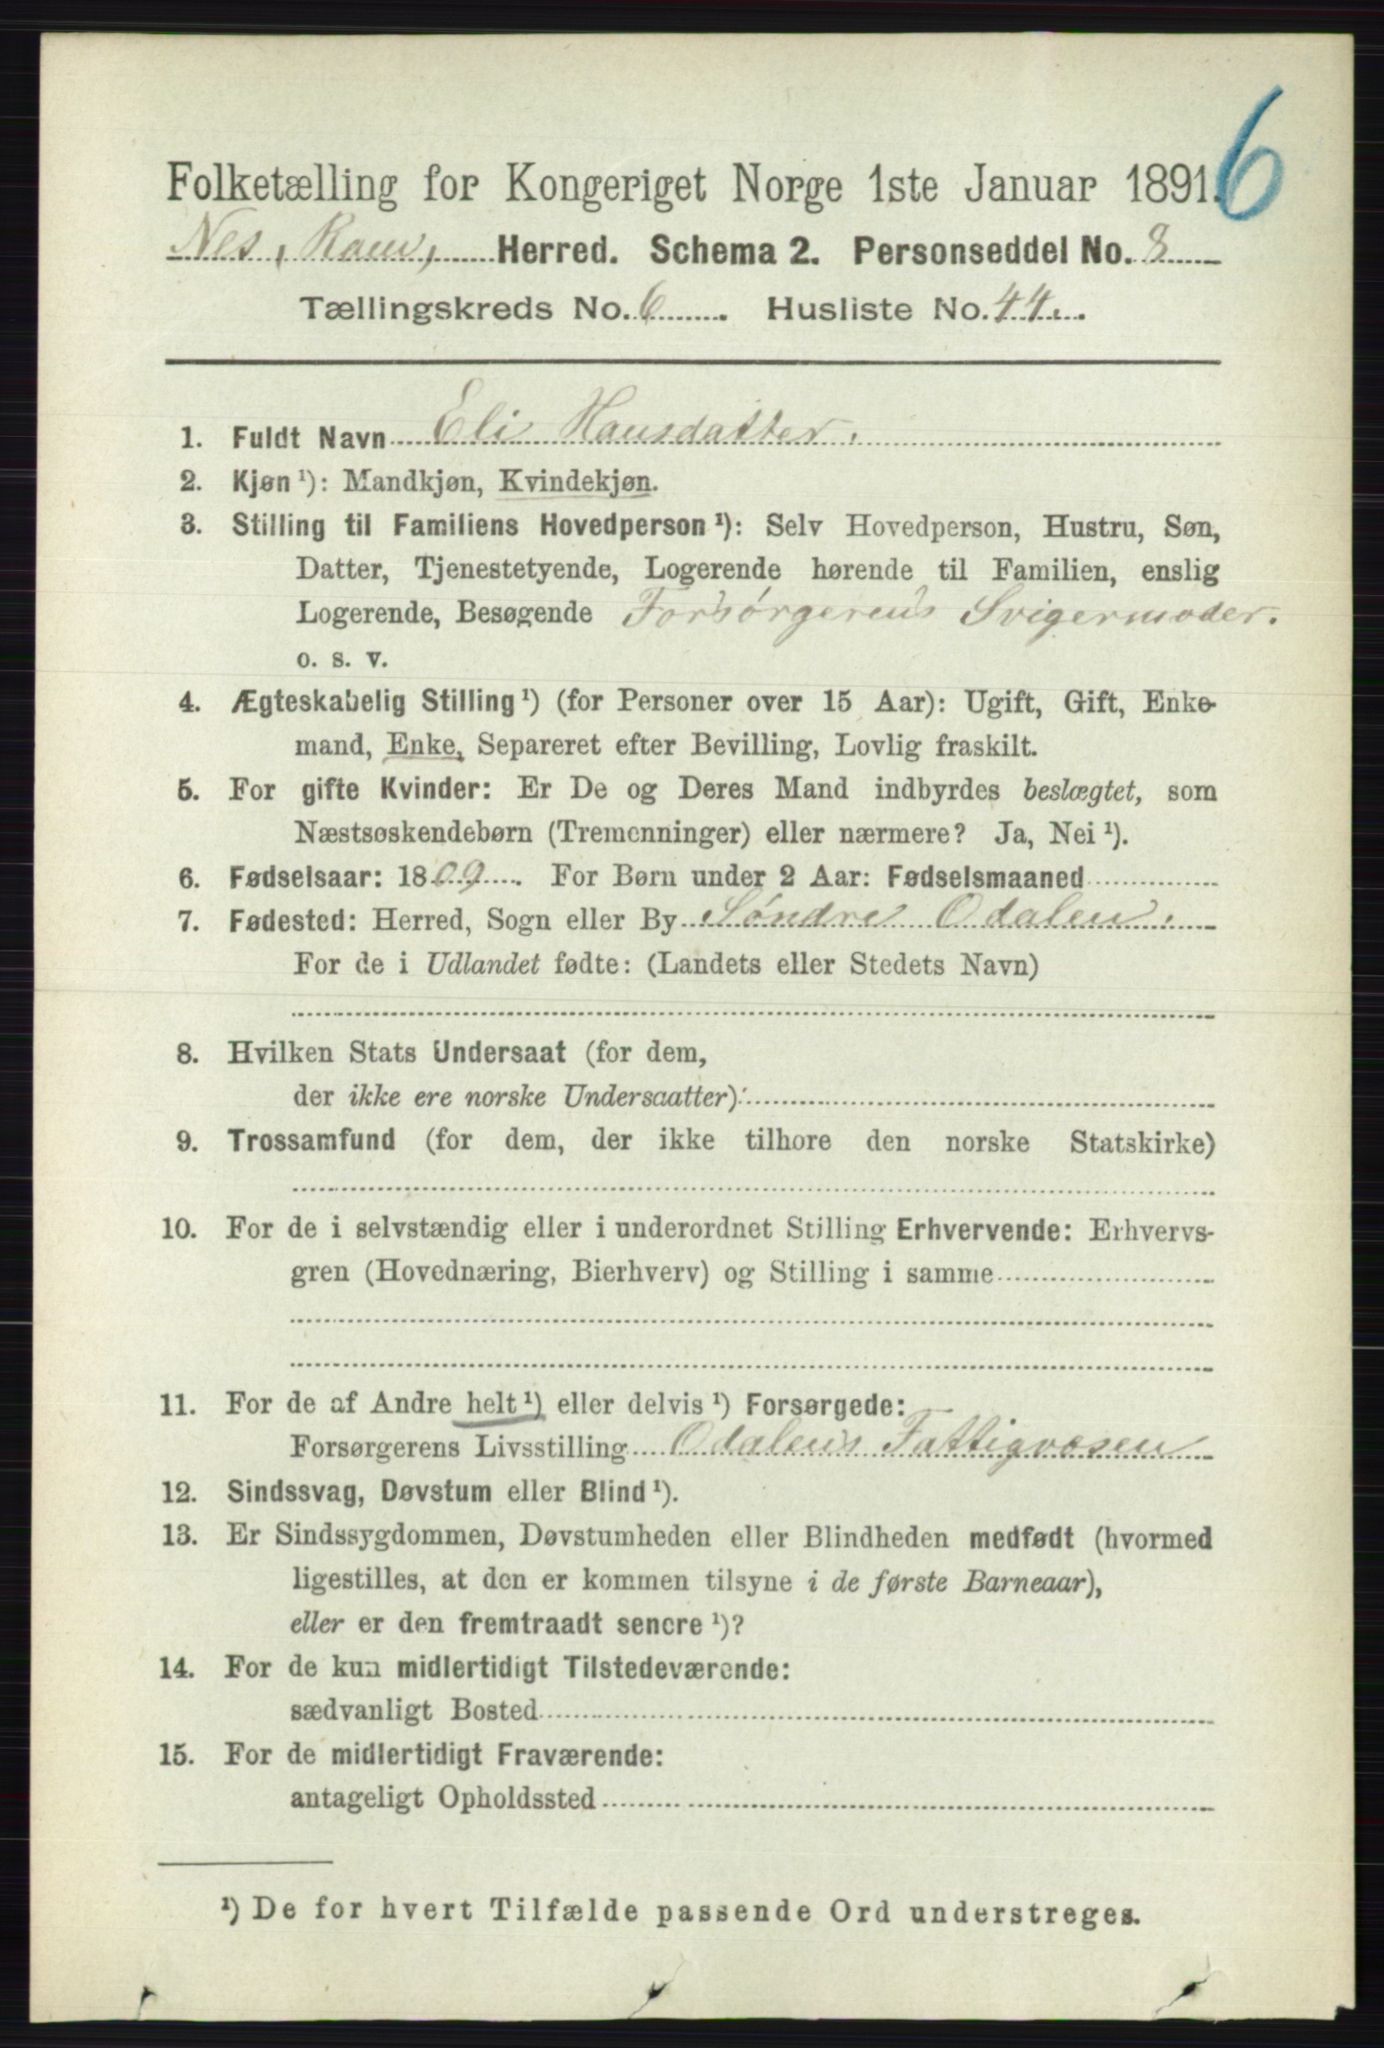 6
Folketælling for Kongeriget Norge 1ste Januar 1891.
Nes, Rom, Herred. Schema 2. Personseddel No. 8
Tællingskreds No. 6. Husliste No. 44.
1. Fuldt Navn Eli Hansdatter.
2. Kjøn ¹): Mandkjøn, Kvindekjøn.
3. Stilling til Familiens Hovedperson ¹): Selv Hovedperson, Hustru, Søn,
Datter, Tjenestetyende, Logerende hørende til Familien, enslig
Logerende, Besøgende Forsørgerens Svigermoder.
o. s. v.
4. Ægteskabelig Stilling ¹) (for Personer over 15 Aar): Ugift, Gift, Enke-
mand, Enke, Separeret efter Bevilling, Lovlig fraskilt.
5. For gifte Kvinder: Er De og Deres Mand indbyrdes beslægtet, som
Næstsøskendebørn (Tremenninger) eller nærmere? Ja, Nei ¹).
6. Fødselsaar: 1809. For Børn under 2 Aar: Fødselsmaaned
7. Fødested: Herred, Sogn eller By Søndre Odalen.
For de i Udlandet fødte: (Landets eller Stedets Navn)
8. Hvilken Stats Undersaat (for dem,
der ikke ere norske Undersaatter):
9. Trossamfund (for dem, der ikke tilhore den norske Statskirke)
10. For de i selvstændig eller i underordnet Stilling Erhvervende: Erhvervs-
gren (Hovednæring, Bierhverv) og Stilling i samme
11. For de af Andre helt ¹) eller delvis ¹) Forsørgede:
Forsørgerens Livsstilling Odalens Fattigvæsen
12. Sindssvag, Døvstum eller Blind ¹).
13. Er Sindssygdommen, Døvstumheden eller Blindheden medfødt (hvormed
ligestilles, at den er kommen tilsyne i de første Barneaar),
eller er den fremtraadt senere ¹)?
14. For de kun midlertidigt Tilstedeværende:
sædvanligt Bosted
15. For de midlertidigt Fraværende:
antageligt Opholdssted
¹) De for hvert Tilfælde passende Ord understreges.